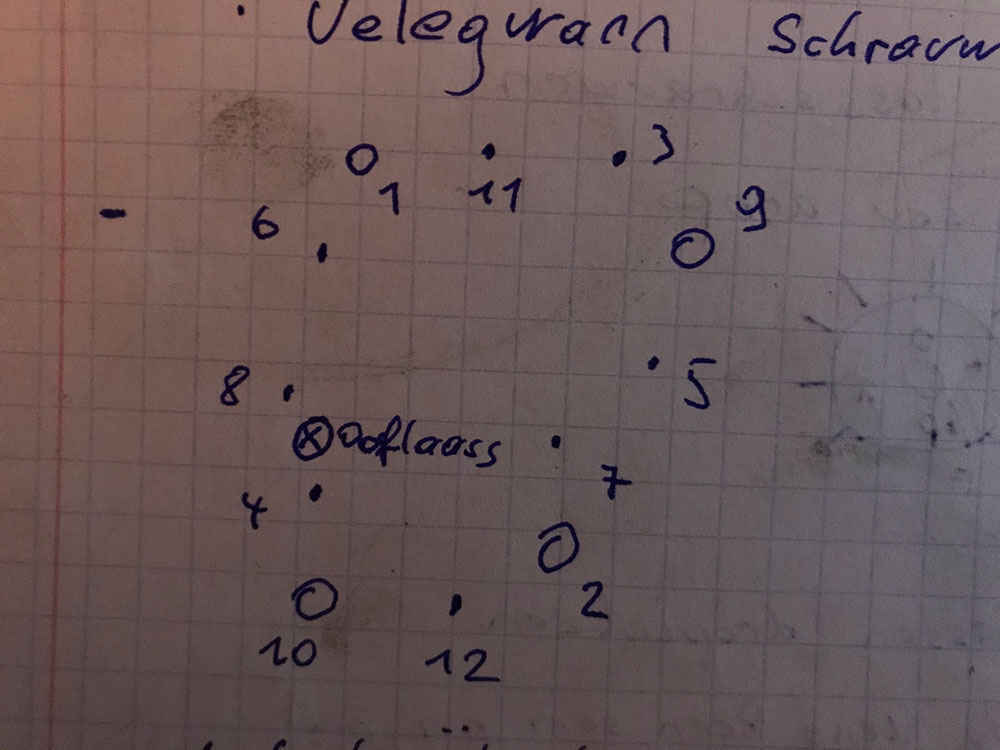 Velegurann Schrauw
1 11 3
6 9
8 5
Ooflaass
7
4
2
10 12